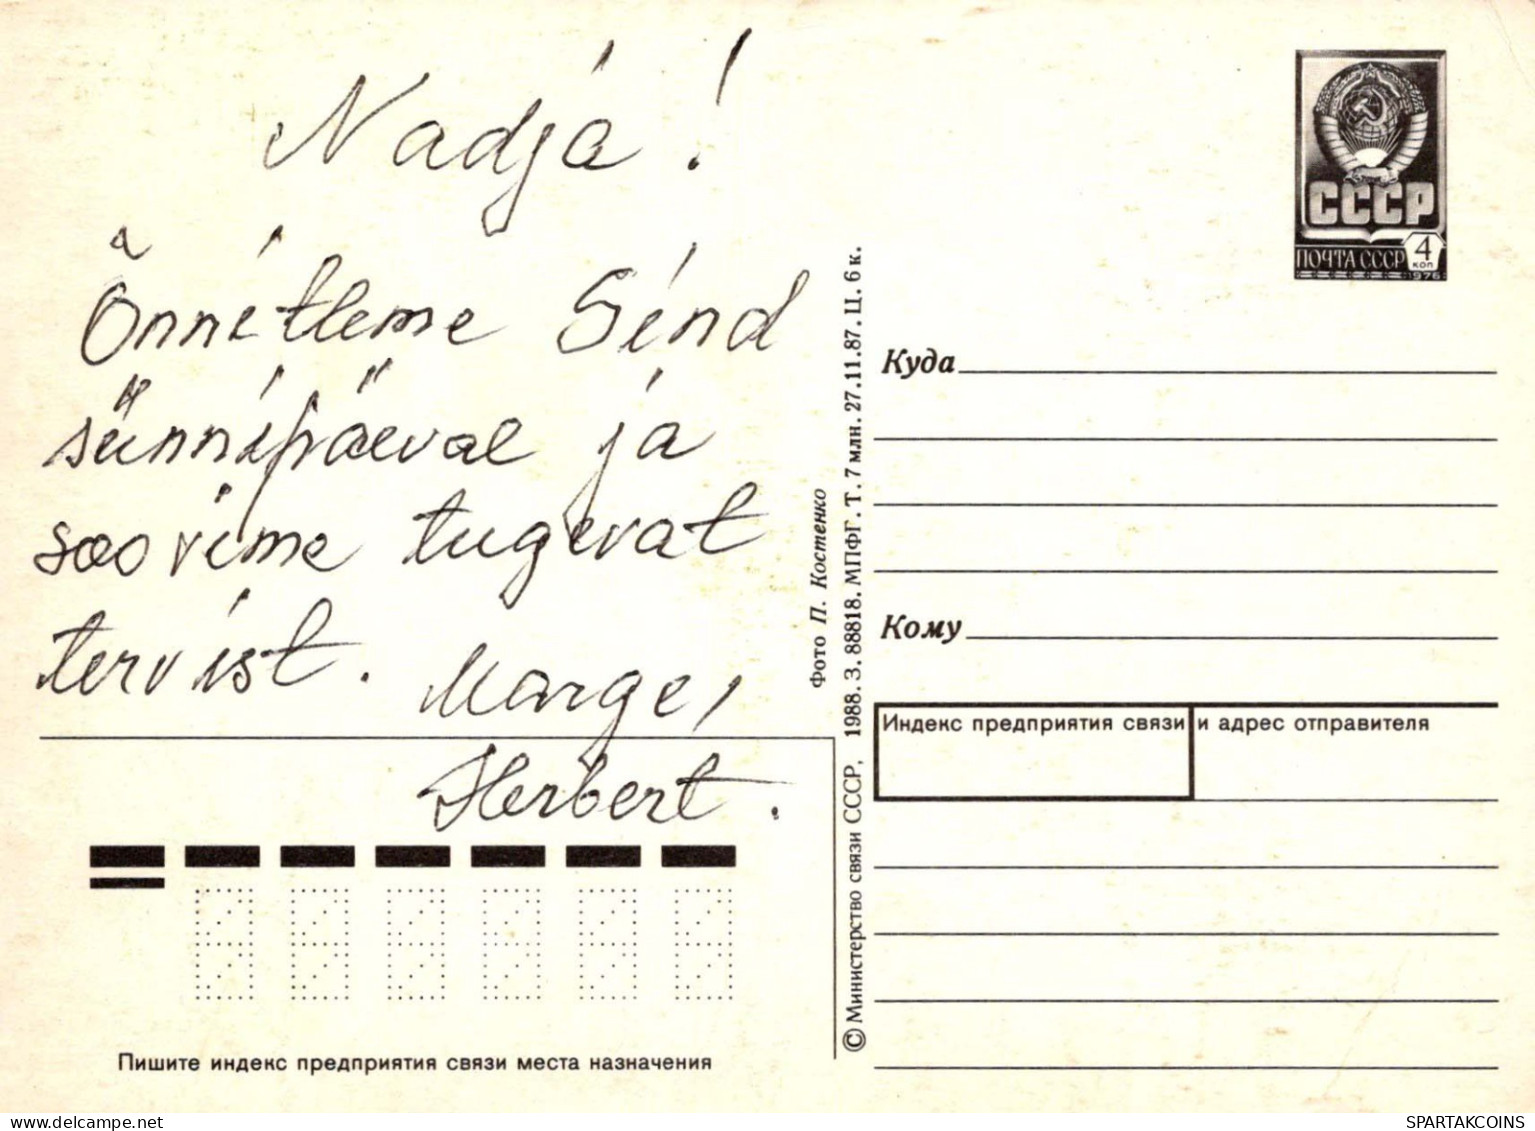 Nadja!
Õnnitleme Sind
sünnipäeval ja
soovime tugevat
tervist. Marge,
Herbert.
Пишите индекс предприятия связи места назначения
Фото П. Костенко
© Министерство связи СССР, 1988. З. 88818. МПФГ. Т. 7 млн. 27.11.87. Ц. 6 к.
СССР
ПОЧТА СССР 4 КОП
1976
Куда
Кому
Индекс предприятия связи и адрес отправителя
delcampe.net
SPARTAKCOINS